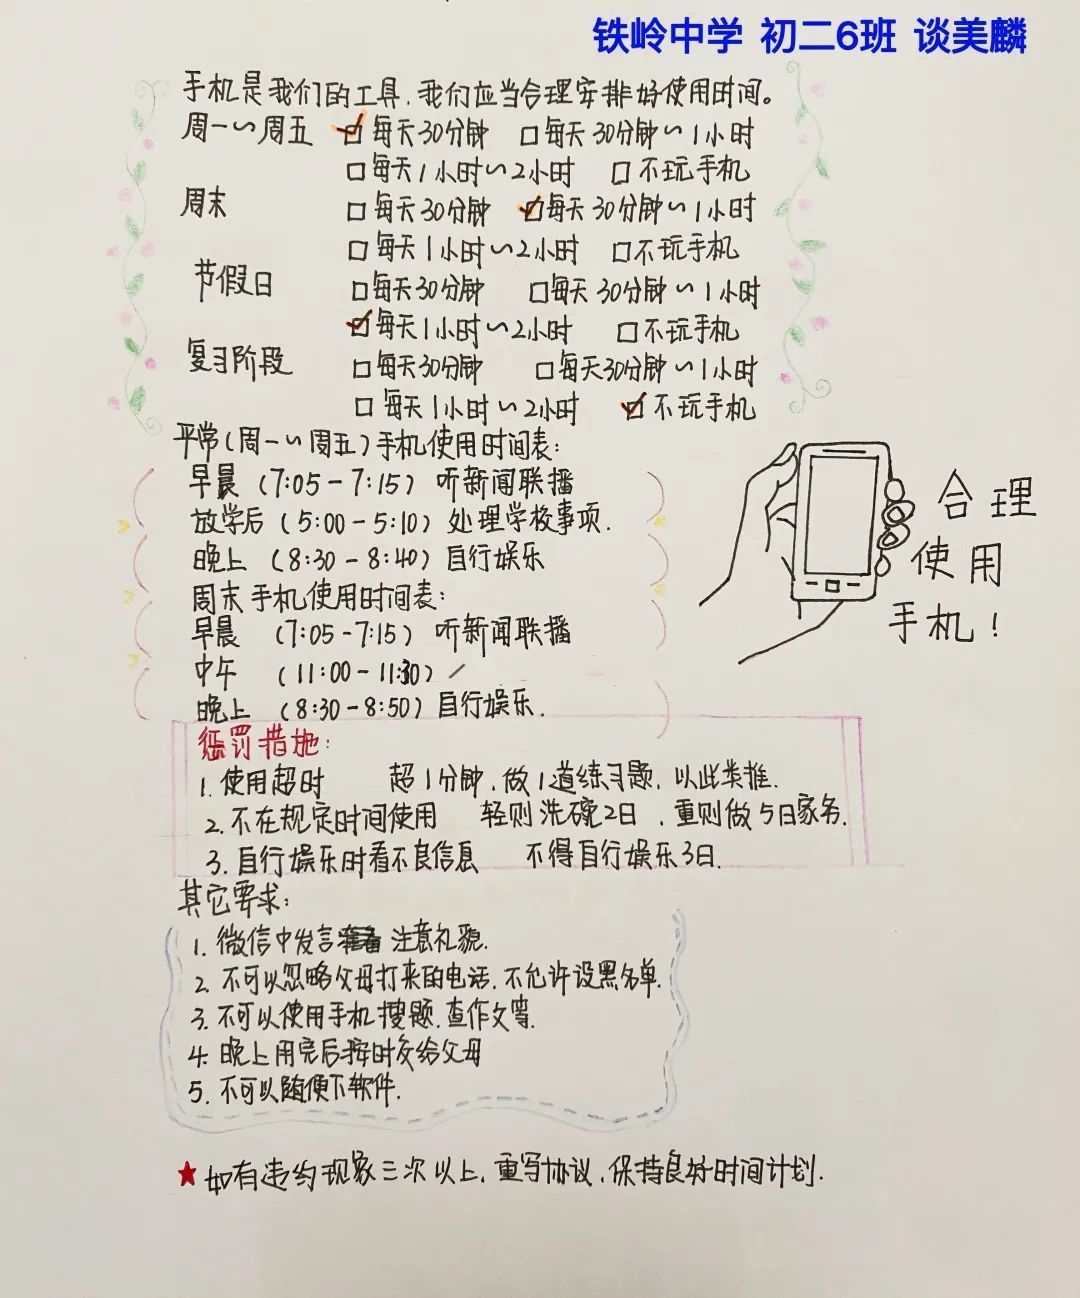 铁岭中学 初二6班 谈美麟
手机是我们的工具,我们应当合理安排好使用时间。
周一~周五 ☑每天30分钟 □每天30分钟~1小时
□每天1小时~2小时 □不玩手机
周末 □每天30分钟 ☑每天30分钟~1小时
□每天1小时~2小时 □不玩手机
节假日 □每天30分钟 □每天30分钟~1小时
☑每天1小时~2小时 □不玩手机
复习阶段 □每天30分钟 □每天30分钟~1小时
□每天1小时~2小时 ☑不玩手机
平常(周一~周五)手机使用时间表:
早晨 (7:05-7:15) 听新闻联播
放学后 (5:00-5:10) 处理学校事项.
晚上 (8:30-8:40) 自行娱乐
周末手机使用时间表:
早晨 (7:05-7:15) 听新闻联播
中午 (11:00-11:30) /
晚上 (8:30-8:50) 自行娱乐.
合理
使用
手机!
惩罚措施:
1.使用超时 超1分钟,做1道练习题,以此类推.
2.不在规定时间使用 轻则洗碗2日,重则做5日家务.
3.自行娱乐时看不良信息 不得自行娱乐3日.
其它要求:
1.微信中发言 注意礼貌.
2.不可以忽略父母打来的电话,不允许设黑名单.
3.不可以使用手机搜题,查作文等.
4.晚上用完后按时交给父母
5.不可以随便下软件.
★如有违约现象三次以上,重写协议,保持良好时间计划.